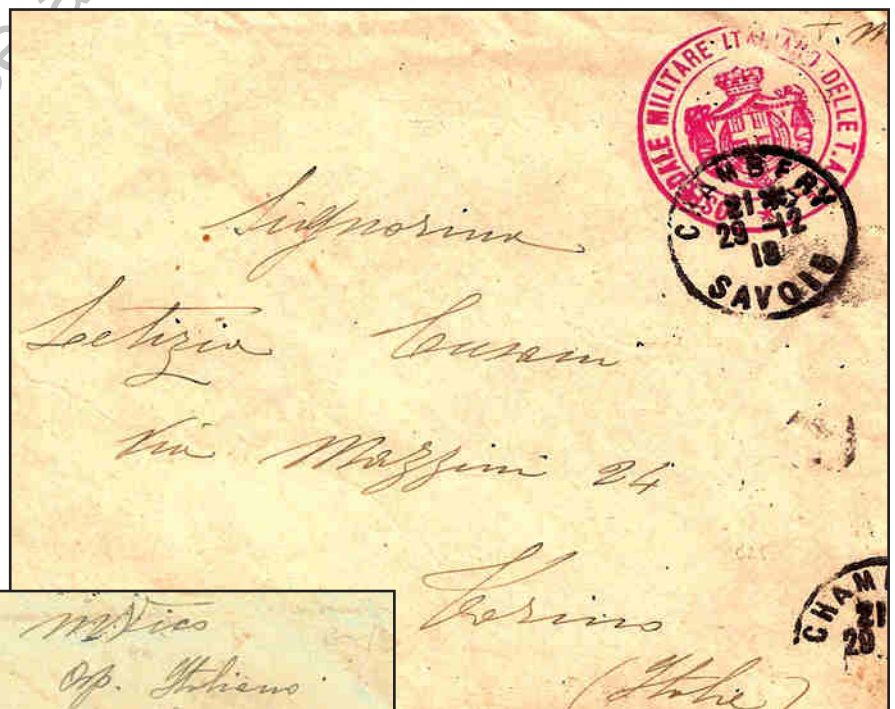 OSPEDALE MILITARE ITALIANO DELLE T.A.
CHAMBERY
21
29-12
18
SAVOIE
Signorina
Letizia Cusani
Via Mazzini 24
Torino
(Italie)
CHAM
21
29
Osp. Italiano